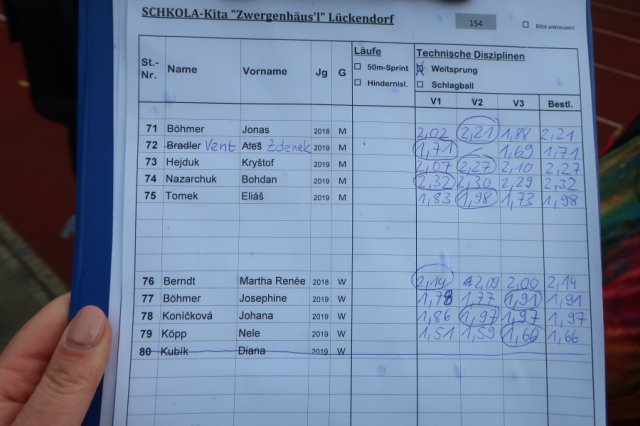 SCHKOLA-Kita "Zwergenhäus'l" Lückendorf 154 Bitte ankreuzen!
Läufe Technische Disziplinen
St.-Nr. Name Vorname Jg G 50m-Sprint Weitsprung
Hindernisl. Schlagball
V1 V2 V3 Bestl.
71 Böhmer Jonas 2018 M 2,02 2,21 1,88 2,21
72 Bradler Vent Ateš Zdenek 2019 M 1,71 – 1,69 1,71
73 Hejduk Kryštof 2019 M 2,07 2,27 2,10 2,27
74 Nazarchuk Bohdan 2019 M 2,32 2,30 2,29 2,32
75 Tomek Eliáš 2019 M 1,83 1,98 1,73 1,98
76 Berndt Martha Renée 2018 W 2,14 2,09 2,00 2,14
77 Böhmer Josephine 2019 W 1,78 1,77 1,91 1,91
78 Koníčková Johana 2019 W 1,86 1,97 1,97 1,97
79 Köpp Nele 2019 W 1,51 1,59 1,66 1,66
80 Kubík Diana 2019 W